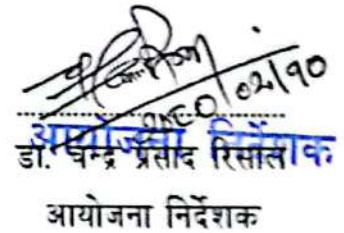 २०८०/०२/१०
आयोजना निर्देशक
डा. चन्द्र प्रसाद रिसाल
आयोजना निर्देशक